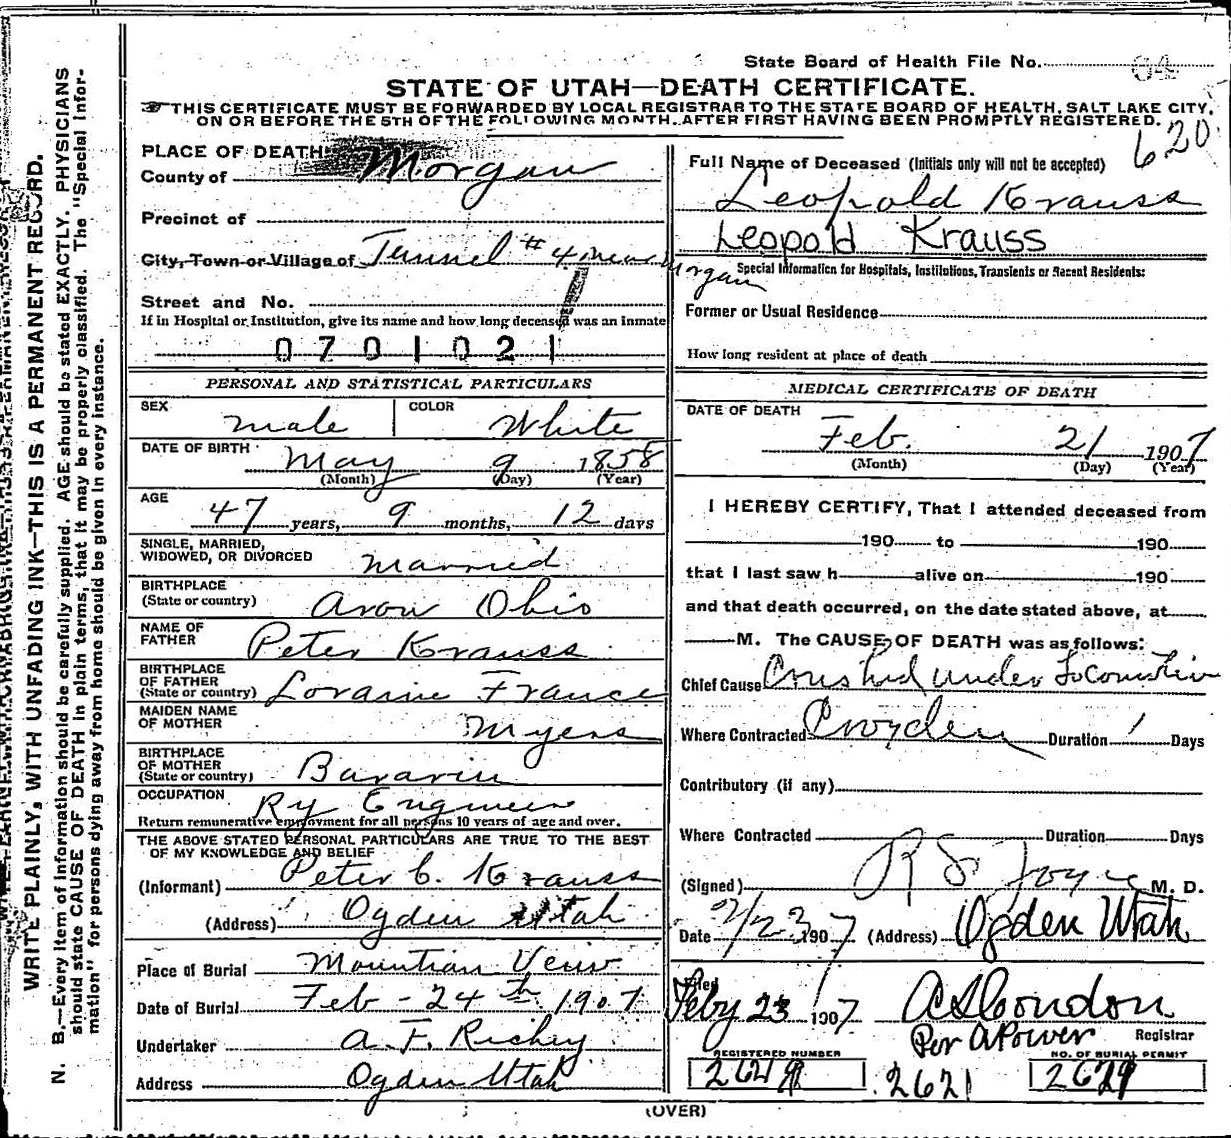 State Board of Health File No. 64
STATE OF UTAH—DEATH CERTIFICATE.
THIS CERTIFICATE MUST BE FORWARDED BY LOCAL REGISTRAR TO THE STATE BOARD OF HEALTH, SALT LAKE CITY,
ON OR BEFORE THE 5TH OF THE FOLLOWING MONTH, AFTER FIRST HAVING BEEN PROMPTLY REGISTERED.
620
PLACE OF DEATH
County of Morgan
Precinct of
City, Town or Village of Tunnel #4 near Morgan
Street and No.
If in Hospital or Institution, give its name and how long deceased was an inmate
0701021
PERSONAL AND STATISTICAL PARTICULARS
SEX male COLOR White
DATE OF BIRTH May 9 1858
(Month) (Day) (Year)
AGE 47 years, 9 months, 12 days
SINGLE, MARRIED,
WIDOWED, OR DIVORCED Married
BIRTHPLACE
(State or country) Avon Ohio
NAME OF
FATHER Peter Krauss
BIRTHPLACE
OF FATHER
(State or country) Loraine France
MAIDEN NAME
OF MOTHER Myers
BIRTHPLACE
OF MOTHER
(State or country) Bavaria
OCCUPATION Ry Engineer
Return remunerative employment for all persons 10 years of age and over.
THE ABOVE STATED PERSONAL PARTICULARS ARE TRUE TO THE BEST
OF MY KNOWLEDGE AND BELIEF
(Informant) Peter C. Krauss
(Address) Ogden Utah
Place of Burial Mountian Veiw
Date of Burial Feb - 24th 1907
Undertaker A. F. Richey
Address Ogden Utah
Full Name of Deceased (Initials only will not be accepted)
Leopold Krauss
Leopold Krauss
Special Information for Hospitals, Institutions, Transients or Recent Residents:
Former or Usual Residence
How long resident at place of death
MEDICAL CERTIFICATE OF DEATH
DATE OF DEATH Feb. 21 1907
(Month) (Day) (Year)
I HEREBY CERTIFY, That I attended deceased from
190 to 190
that I last saw h alive on 190
and that death occurred, on the date stated above, at
M. The CAUSE OF DEATH was as follows:
Chief Cause Crushed under Locomotive
Where Contracted Croyden Duration 1 Days
Contributory (if any)
Where Contracted Duration Days
(Signed) R S Joyce M. D.
Date 2/23 1907 (Address) Ogden Utah
Filed
Feby 23 1907 A S Condon
Per A Power Registrar
REGISTERED NUMBER NO. OF BURIAL PERMIT
2621
(OVER)
WRITE PLAINLY, WITH UNFADING INK—THIS IS A PERMANENT RECORD.
N. B.—Every item of information should be carefully supplied. AGE should be stated EXACTLY. PHYSICIANS
should state CAUSE OF DEATH in plain terms, that it may be properly classified. The "Special Infor-
mation" for persons dying away from home should be given in every instance.